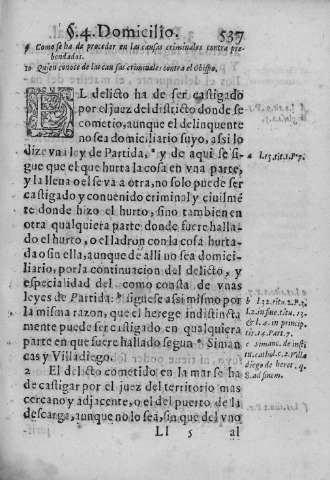 §. 4. Domicilio. 537
9 Como se ha de proceder en las causas criminales contra pre-
bendados.
10 Quien conoce de las causas criminales contra el Obispo.
EL delicto ha de ser castigado
por el juez del districto donde se
cometio, aunque el delinquente
no sea domiciliario suyo, assi lo
dize vna ley de Partida, a y de aqui se si-
gue que el que hurta la cosa en vna parte,
y la lleua o el se va a otra, no solo puede ser
castigado y conuenido criminal y ciuilmē
te donde hizo el hurto, sino tambien en
otra qualquiera parte donde fuere halla-
do el hurto, o el ladron con la cosa hurta-
da o sin ella, aunque de alli no sea domici-
liario, por la continuacion del delicto, y
especialidad del como consta de vnas
leyes de Partida: b siguese assi mismo por
la misma razon, que el herege indistincta
mente puede ser castigado en qualquiera
parte en que fuere hallado segun c Siman
cas y Villadiego.
2 El delicto cometido en la mar se ha
de castigar por el juez del territorio mas
cercano y adjacente, o el del puerto de la
descarga, aunque no lo sea, sin que del vno
Ll 5 al
a l.15.tit.1.P.7.
b l.32.titu.2.P.3.
l.2.in fine.titu.13.
& l. 4. in princip.
tit.14.Part.7.
c Simanc. de insti
tu.cathol.c.2. Villa
diego de heret. q.
8. ad finem.